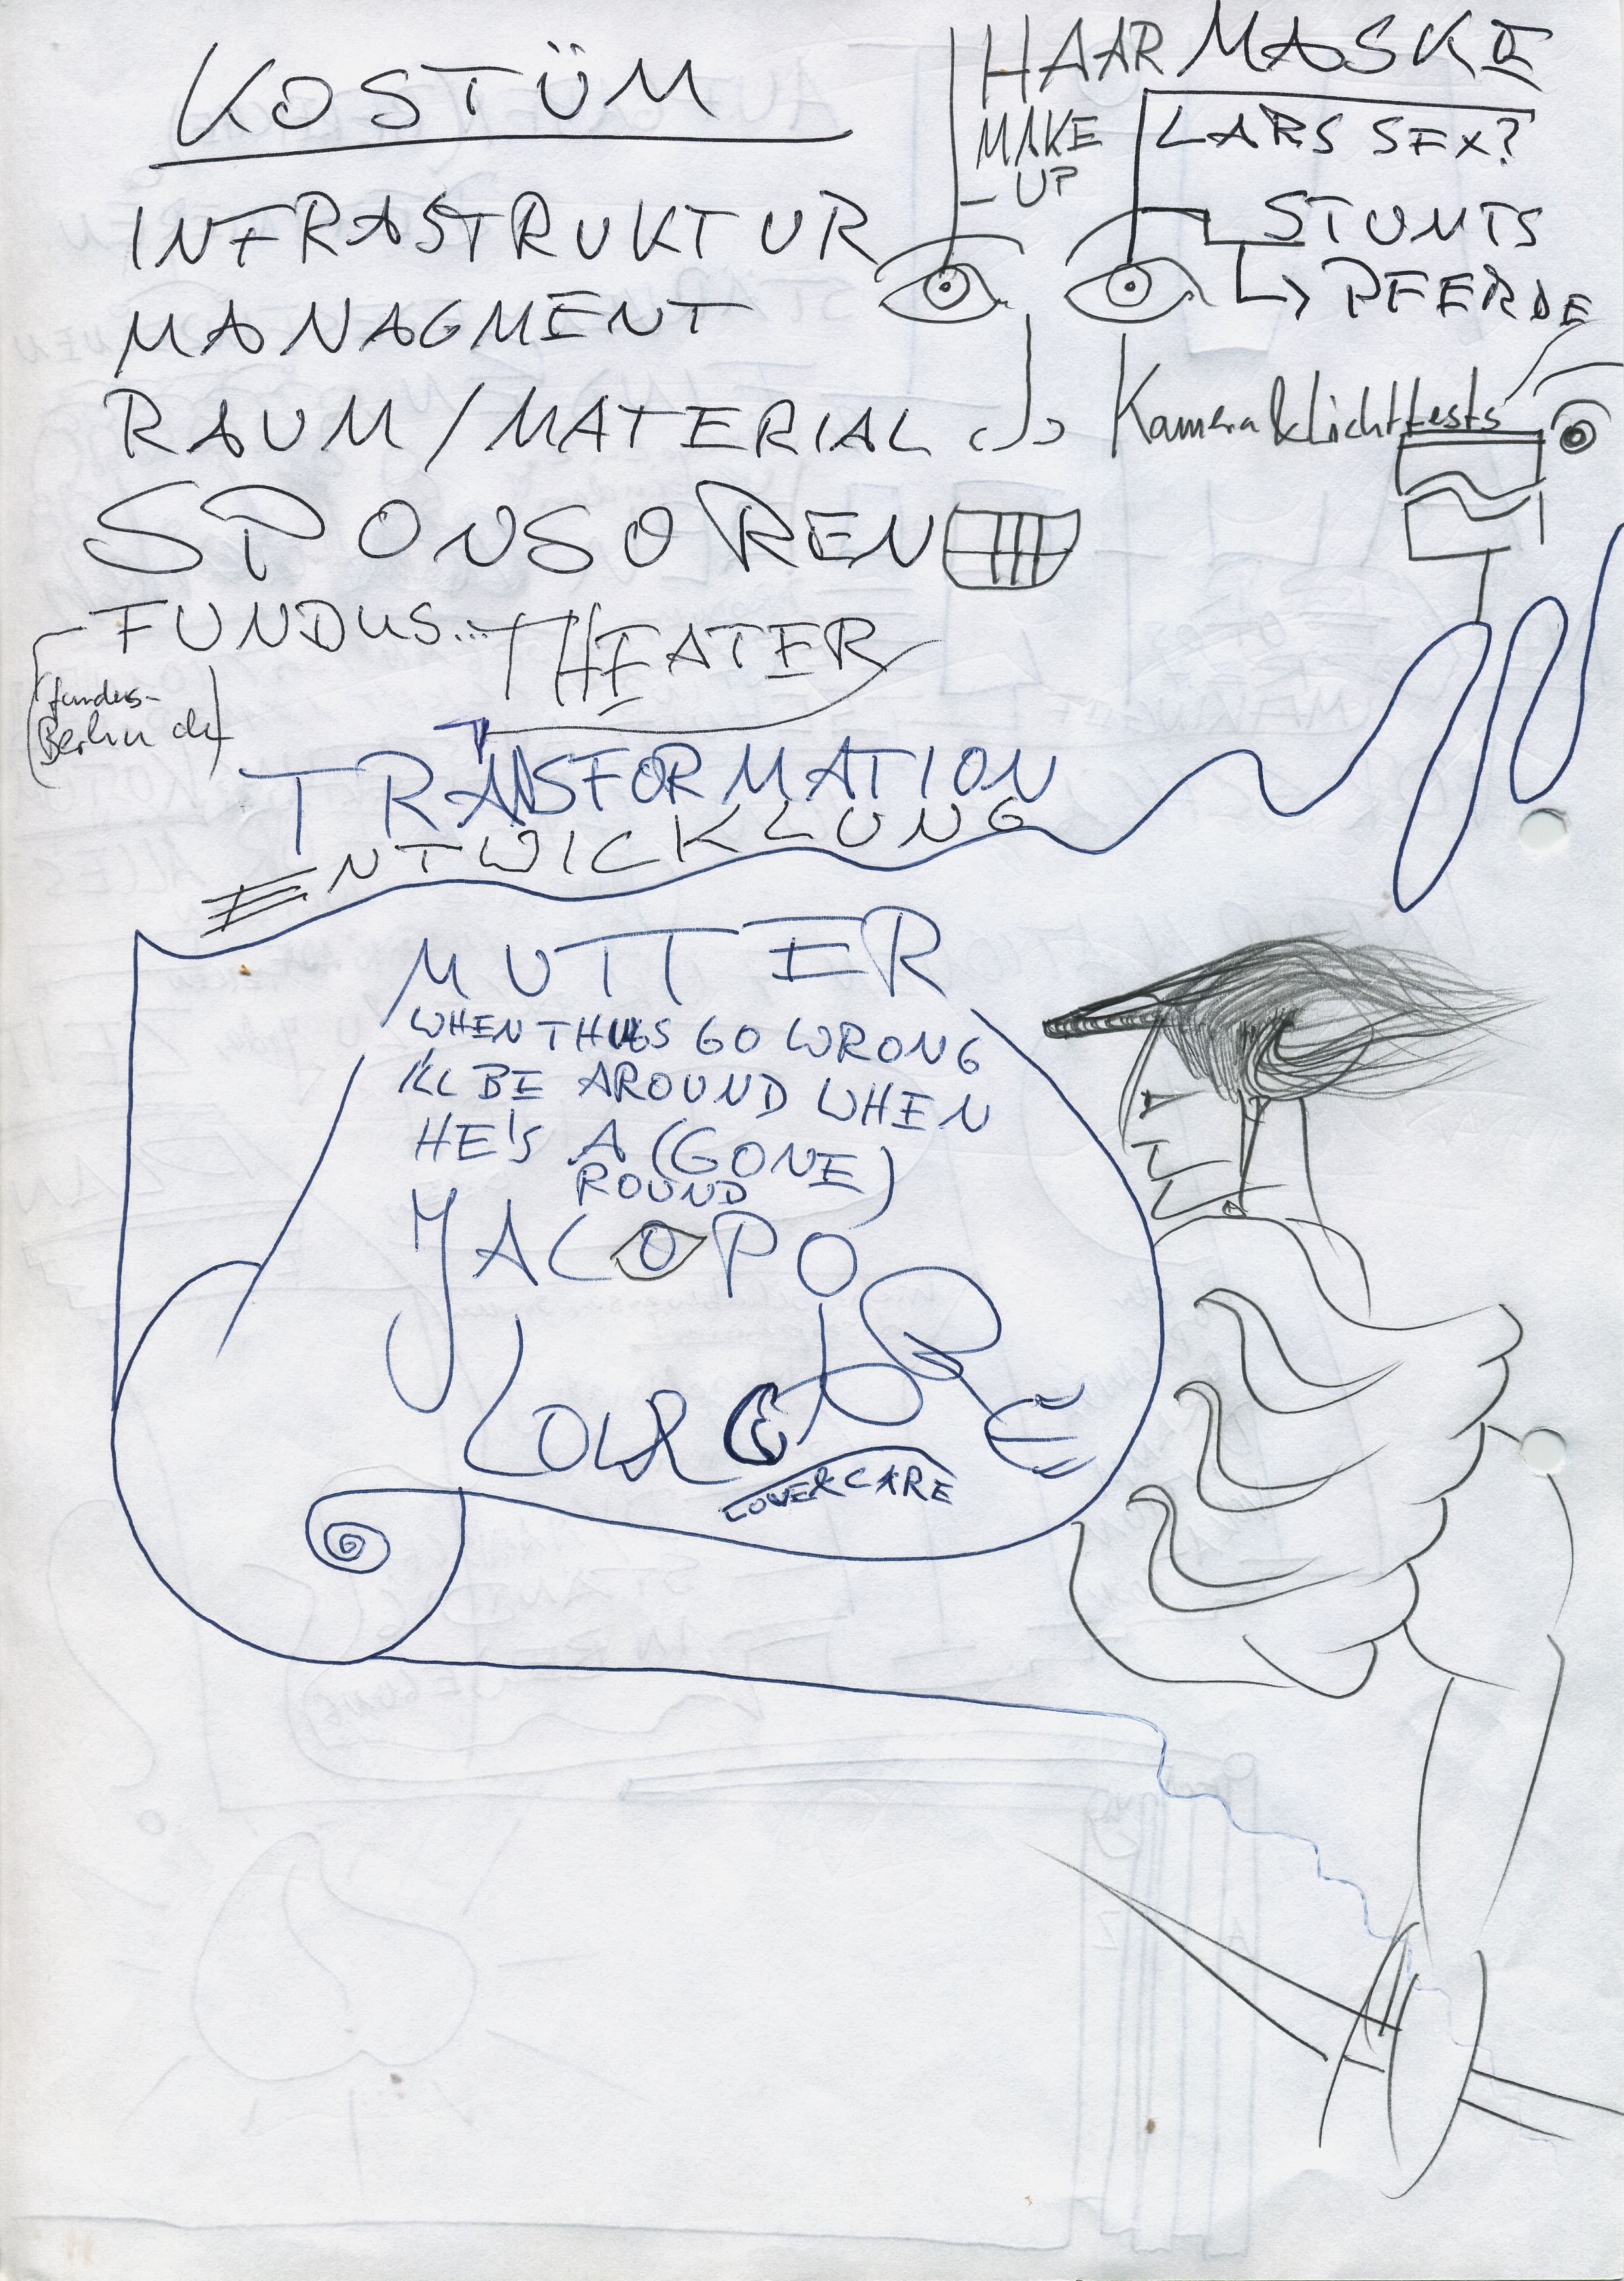 KOSTÜM
HAAR MASKE
MAKE
-UP
LARS SFX?
STUNTS
PFERDE
INFRASTRUKTUR
MANAGMENT
RAUM/MATERIAL
Kamera & Lichttests
SPONSOREN
FUNDUS... THEATER
(fundus-
Berlin.de)
TRANSFORMATION
ENTWICKLUNG
MUTTER
WHEN THINGS GO WRONG
I'LL BE AROUND WHEN
HE'S A (GONE)
ROUND
JACOPO
LOVE & CARE